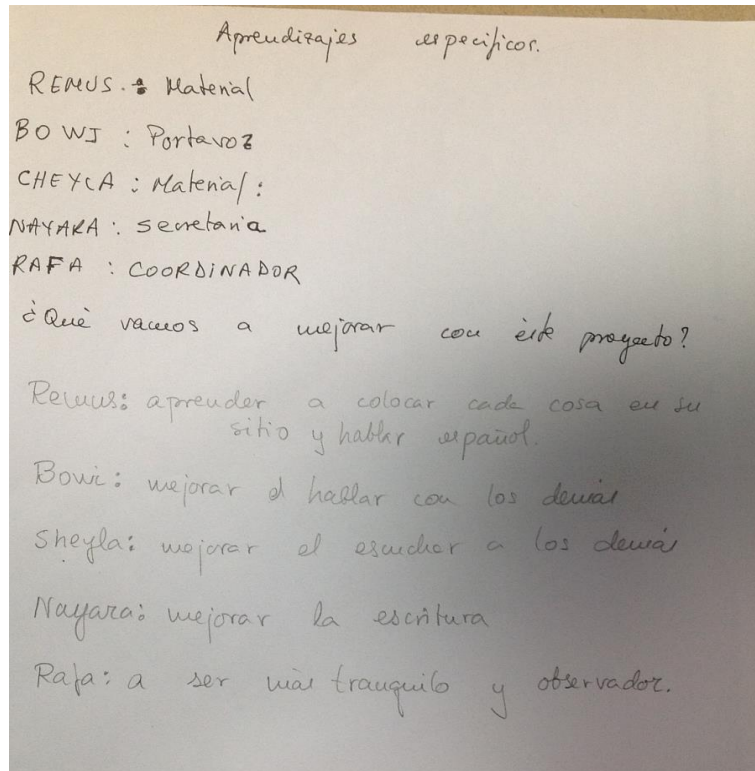 Aprendizajes específicos.
REMUS.: Material
BOWI : Portavoz
CHEYLA : Material :
NAYARA : Secretaria
RAFA : COORDINADOR
¿Qué vamos a mejorar con éste proyecto?
Remus: aprender a colocar cada cosa en su
sitio y hablar español.
Bowi: mejorar el hablar con los demás
Sheyla: mejorar el escuchar a los demás
Nayara: mejorar la escritura
Rafa: a ser más tranquilo y observador.